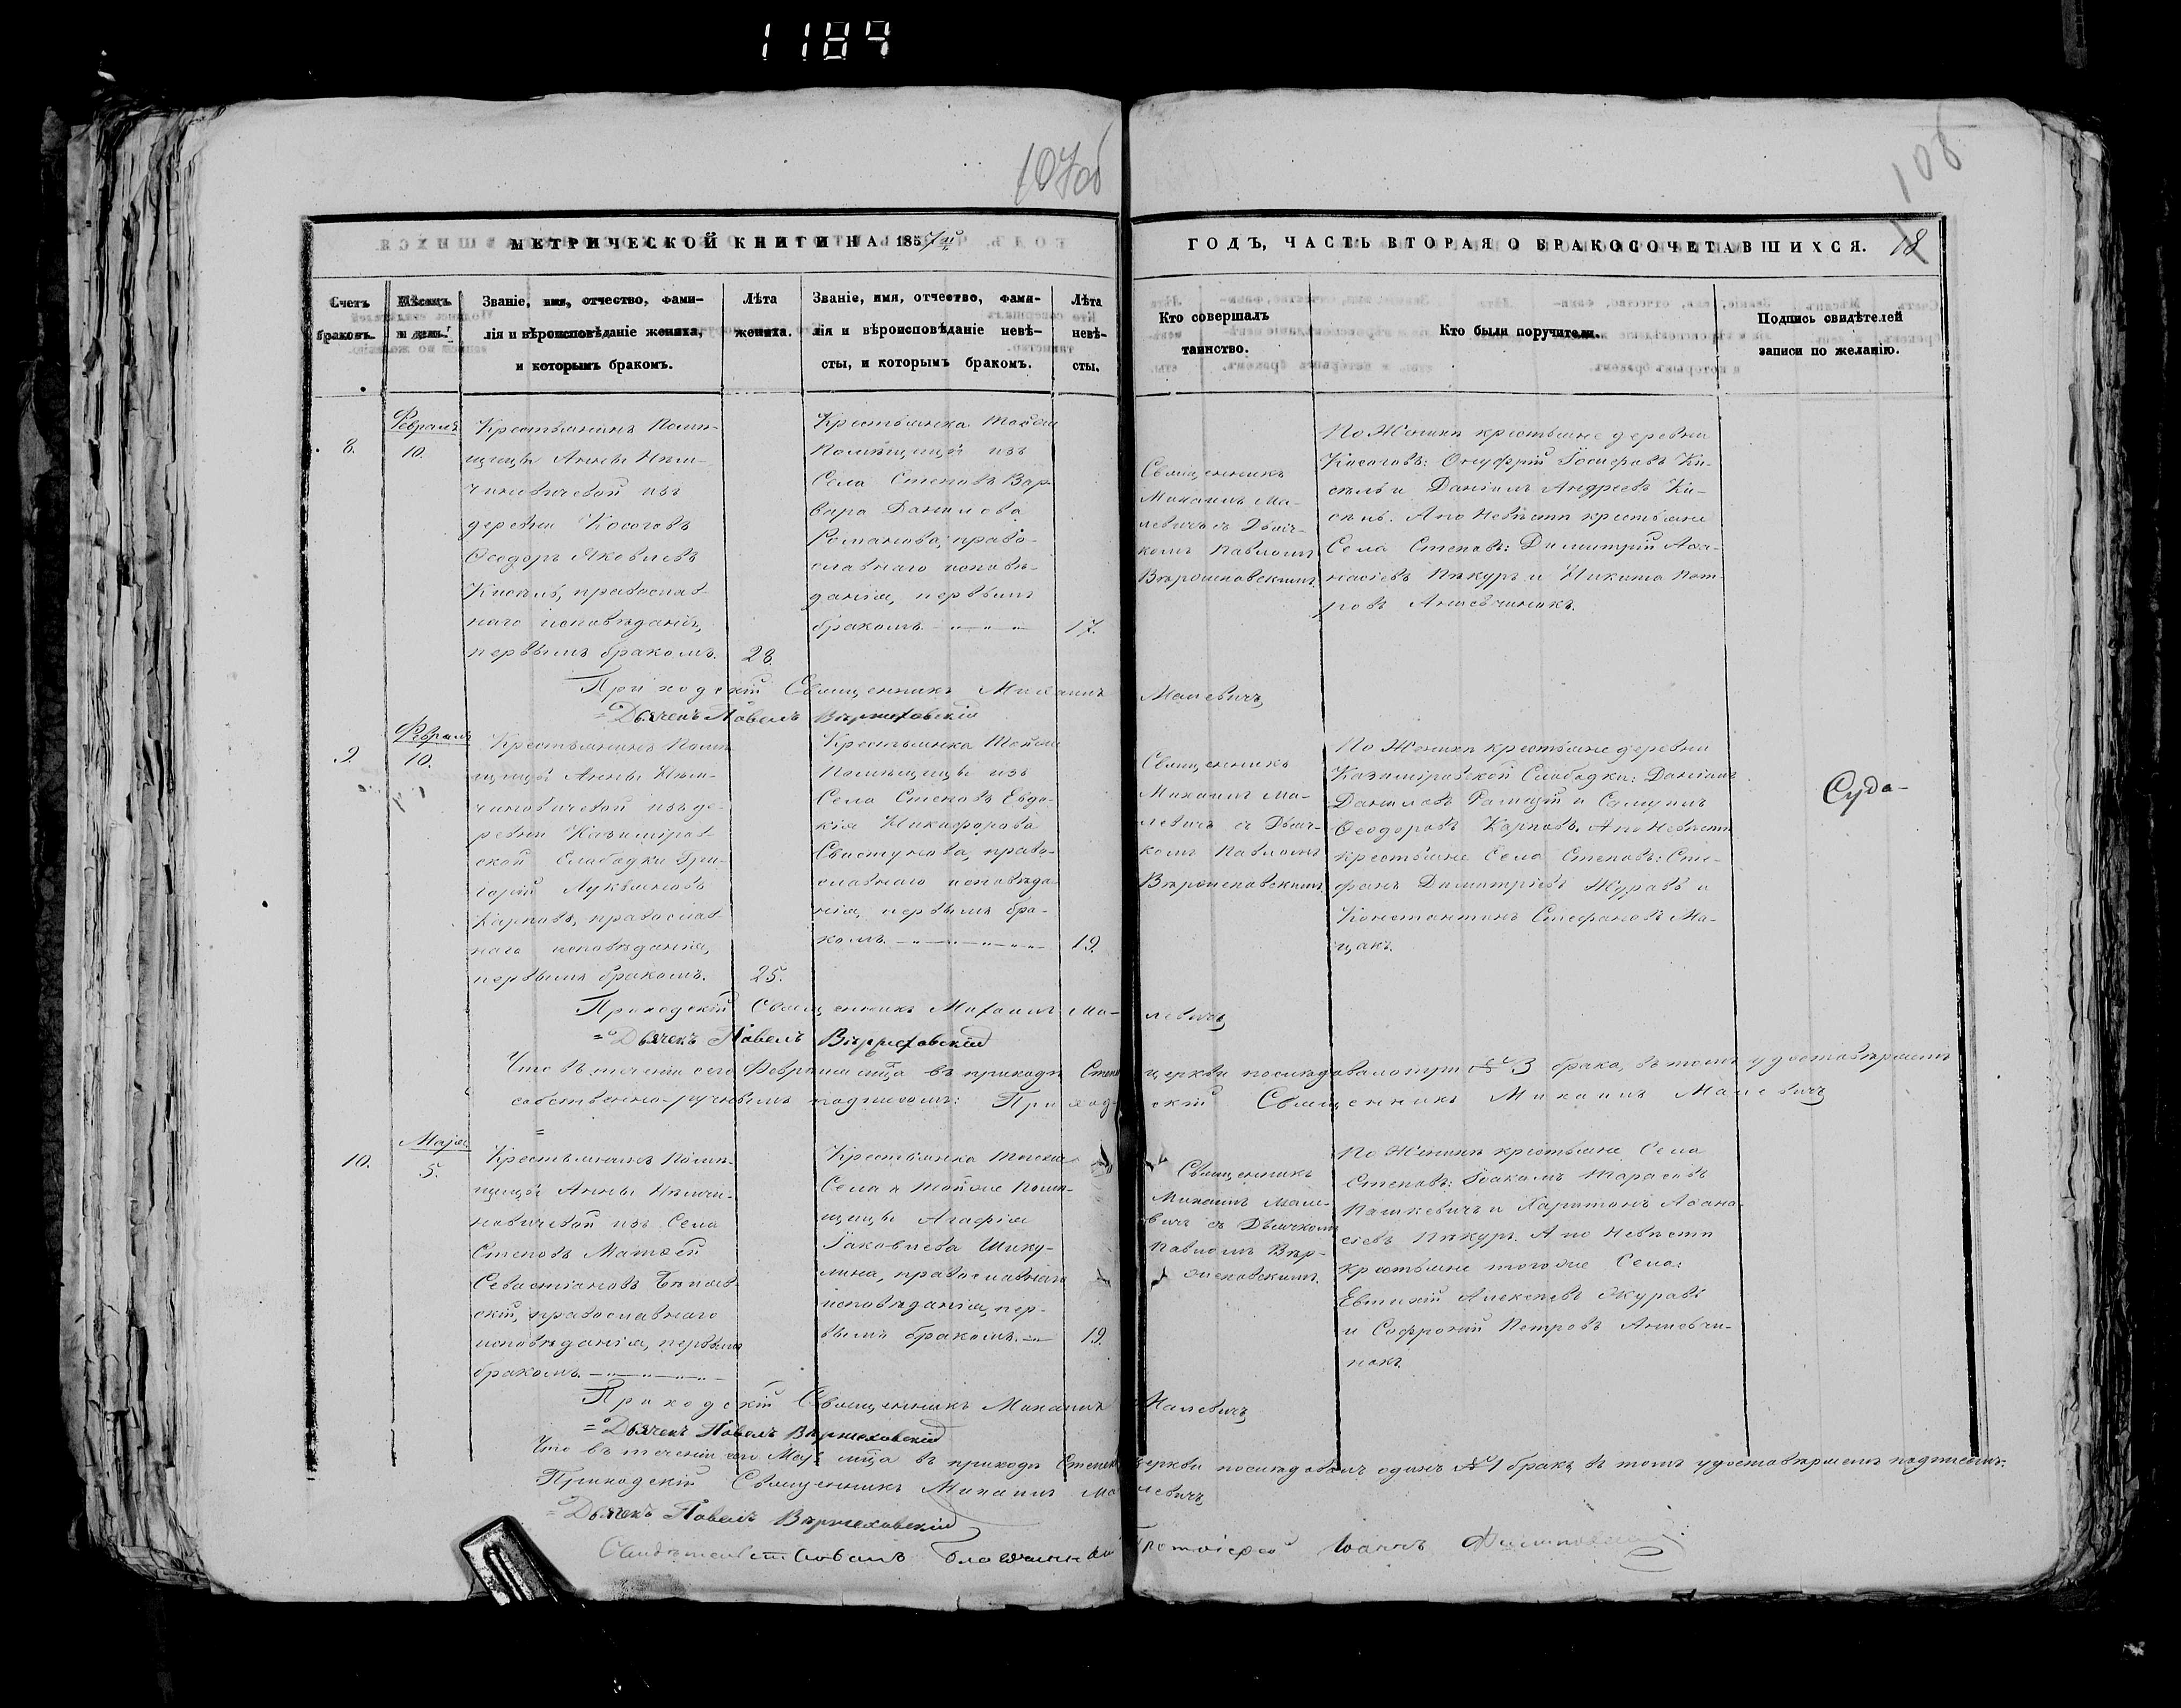 1184
107об
108
МЕТРИЧЕСКОЙ КНИГИ НА 1857й
ГОДЪ, ЧАСТЬ ВТОРАЯ О БРАКОСОЧЕТАВШИХСЯ. 18
Счетъ браковъ.
Мѣсяцъ и день.
Званіе, имя, отчество, фами-
лія и вѣроисповѣданіе жениха,
и которымъ бракомъ.
Лѣта жениха.
Званіе, имя, отчество, фами-
лія и вѣроисповѣданіе невѣ-
сты, и которымъ бракомъ.
Лѣта невѣ-
сты.
Кто совершалъ
таинство.
Кто были поручители.
Подпись свидѣтелей
записи по желанію.
8.
Февраля
10.
Крестьянинъ Помѣ-
щицы Анны Нѣм-
чиновичевой изъ
деревни Косоговъ
Ѳеодоръ Яковлевъ
Кисѣль, православ-
наго исповѣданія,
первымъ бракомъ.
28.
Крестьянка тойже
Помѣщицы изъ
Села Степовъ Вар-
вара Данилова
Романова, право-
славнаго исповѣ-
данія, первымъ
бракомъ.
17.
Священникъ
Михаилъ Ма-
левичъ съ Дьяч-
комъ Павломъ
По Женихѣ крестьяне деревни
Косоговъ: Онуфрій Іосифовъ Ки-
сѣль и Даніилъ Андреевъ Ки-
сѣль. А по Невѣстѣ крестьяне
Села Степовъ: Димитрій Аѳа-
насіевъ Пѣкуръ и Никита Пет-
ровъ
Приходскій Священникъ Михаилъ Малевичъ
=Дьячекъ Павелъ
9.
Февраля
10.
Крестьянинъ Помѣ-
щицы Анны Нѣм-
чиновичевой изъ де-
ревни Казимиров-
ской Слободки Гри-
горій Лукьяновъ
Карповъ, православ-
наго исповѣданія,
первымъ бракомъ.
25.
Крестьянка тойже
Помѣщицы изъ
Села Степовъ Евдо-
кія Никифорова
Свистунова, право-
славнаго исповѣда-
нія, первымъ бра-
комъ.
19.
Священникъ
Михаилъ Ма-
левичъ съ Дьяч-
комъ Павломъ
По Женихѣ крестьяне деревни
Казимировской Слободки: Даніилъ
Даниловъ и Самуилъ
Ѳеодоровъ Карповъ. А по Невѣстѣ
крестьяне Села Степовъ: Сте-
фанъ Димитріевъ Журавъ и
Константинъ Стефановъ Ма-
цакъ.
Судо-
Приходскій Священникъ Михаилъ Малевичъ
=Дьячекъ Павелъ
Что въ теченіи сего Февраля мѣсца въ приходѣ церкви послѣдовало три № 3 брака, въ томъ удостовѣряетъ
собственно-ручнымъ подписомъ: Приходскій Священникъ Михаилъ Малевичъ
=
10.
Маія
5.
Крестьянинъ Помѣ-
щицы Анны Нѣмчи-
новичевой изъ Села
Степовъ Матѳей
Севастіановъ
скій, православнаго
исповѣданія, первымъ
бракомъ.
Крестьянка тогоже
Села и тойже Помѣ-
щицы Агафія
Іаковлева Шику-
лина, православнаго
исповѣданія, пер-
вымъ бракомъ.
19.
Священникъ
Михаилъ Мале-
вичъ съ Дьячкомъ
Павломъ
По Женихѣ крестьяне Села
Степовъ: Іоакимъ Тарасовъ
Пашкевичъ и Харитонъ Аѳана-
сіевъ Пѣкуръ. А по Невѣстѣ
крестьяне тогоже Села:
Евтихій Алексѣевъ Журавъ
и Софроній Петровъ
Приходскій Священникъ Михаилъ Малевичъ
=Дьячекъ Павелъ
Что въ теченіи сего Маія мѣсца въ приходѣ церкви послѣдовалъ одинъ № 1 бракъ, въ томъ удостовѣряемъ подписомъ:
Приходскій Священникъ Михаилъ Малевичъ
=Дьячекъ Павелъ
Свидѣтельствовалъ Благочинный Протоіерей Іоаннъ